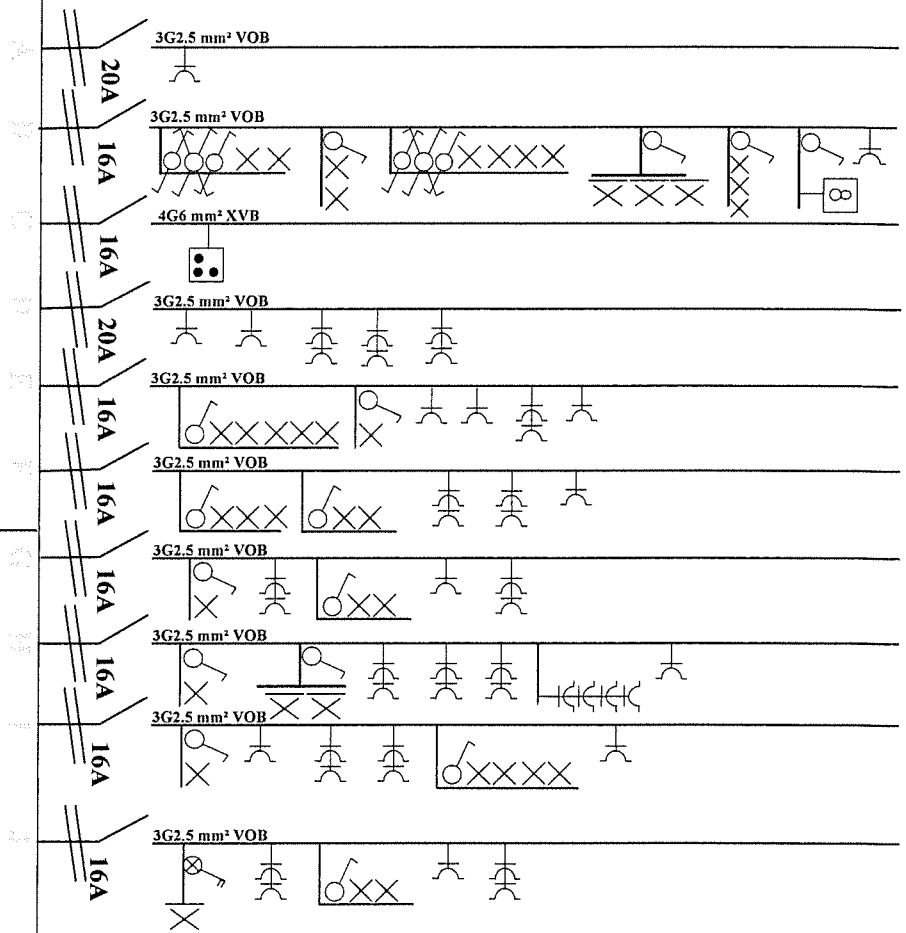 3G2.5 mm² VOB
20A
3G2.5 mm² VOB
16A
4G6 mm² XVB
16A
3G2.5 mm² VOB
20A
3G2.5 mm² VOB
16A
3G2.5 mm² VOB
16A
3G2.5 mm² VOB
16A
3G2.5 mm² VOB
16A
3G2.5 mm² VOB
16A
3G2.5 mm² VOB
16A